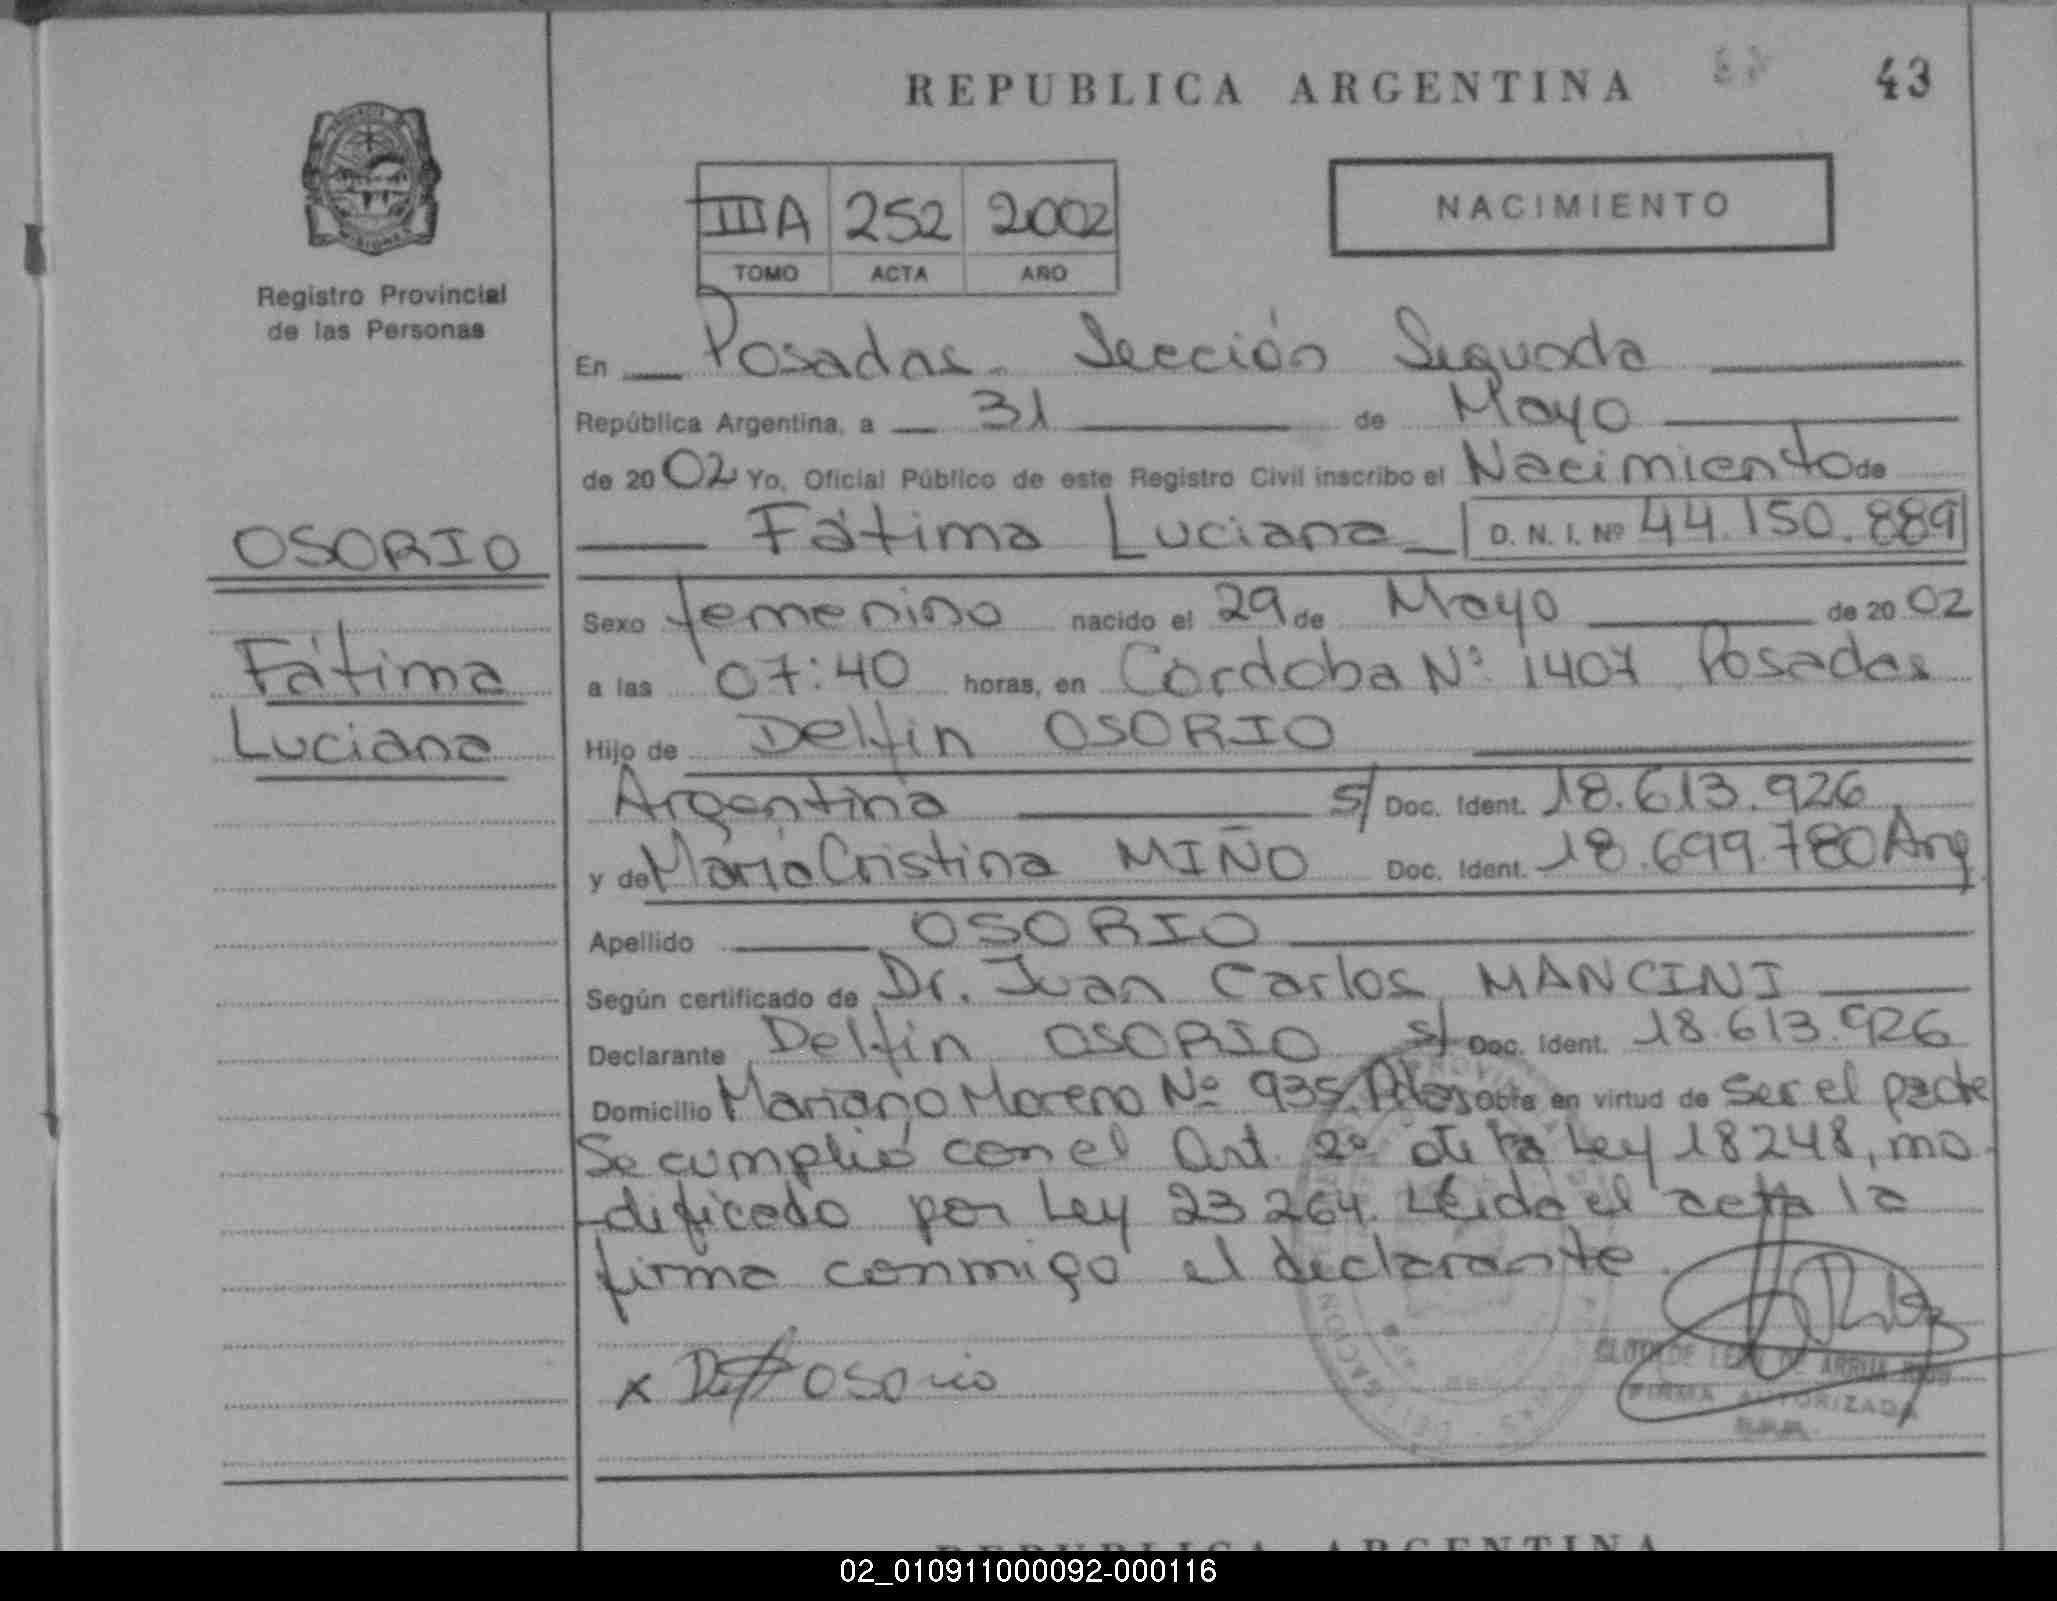 REPUBLICA ARGENTINA
43
IIIA 252 2002
TOMO ACTA AÑO
NACIMIENTO
Registro Provincial
de las Personas
OSORIO
Fátima
Luciana
En Posadas. Sección Segunda
República Argentina, a 31 de Mayo
de 2002 Yo, Oficial Público de este Registro Civil inscribo el Nacimiento de
Fátima Luciana D. N. I. Nº 44.150.889
Sexo femenino nacido el 29 de Mayo de 2002
a las 07:40 horas, en Córdoba Nº 1407 Posadas
Hijo de Delfín OSORIO
Argentina s/ Doc. Ident. 18.613.926
y de María Cristina MIÑO Doc. Ident. 18.699.780 Arg
Apellido OSORIO
Según certificado de Dr. Juan Carlos MANCINI
Declarante Delfín OSORIO s/ Doc. Ident. 18.613.926
Domicilio Mariano Moreno Nº 935 Pdas Obra en virtud de ser el padre
Se cumplió con el Art. 2º de la Ley 18248, mo
dificado por Ley 23264. Leída el acta la
firma conmigo el declarante.
x Delf Osorio
FIRMA AUTORIZADA
REPUBLICA ARGENTINA
02_010911000092-000116